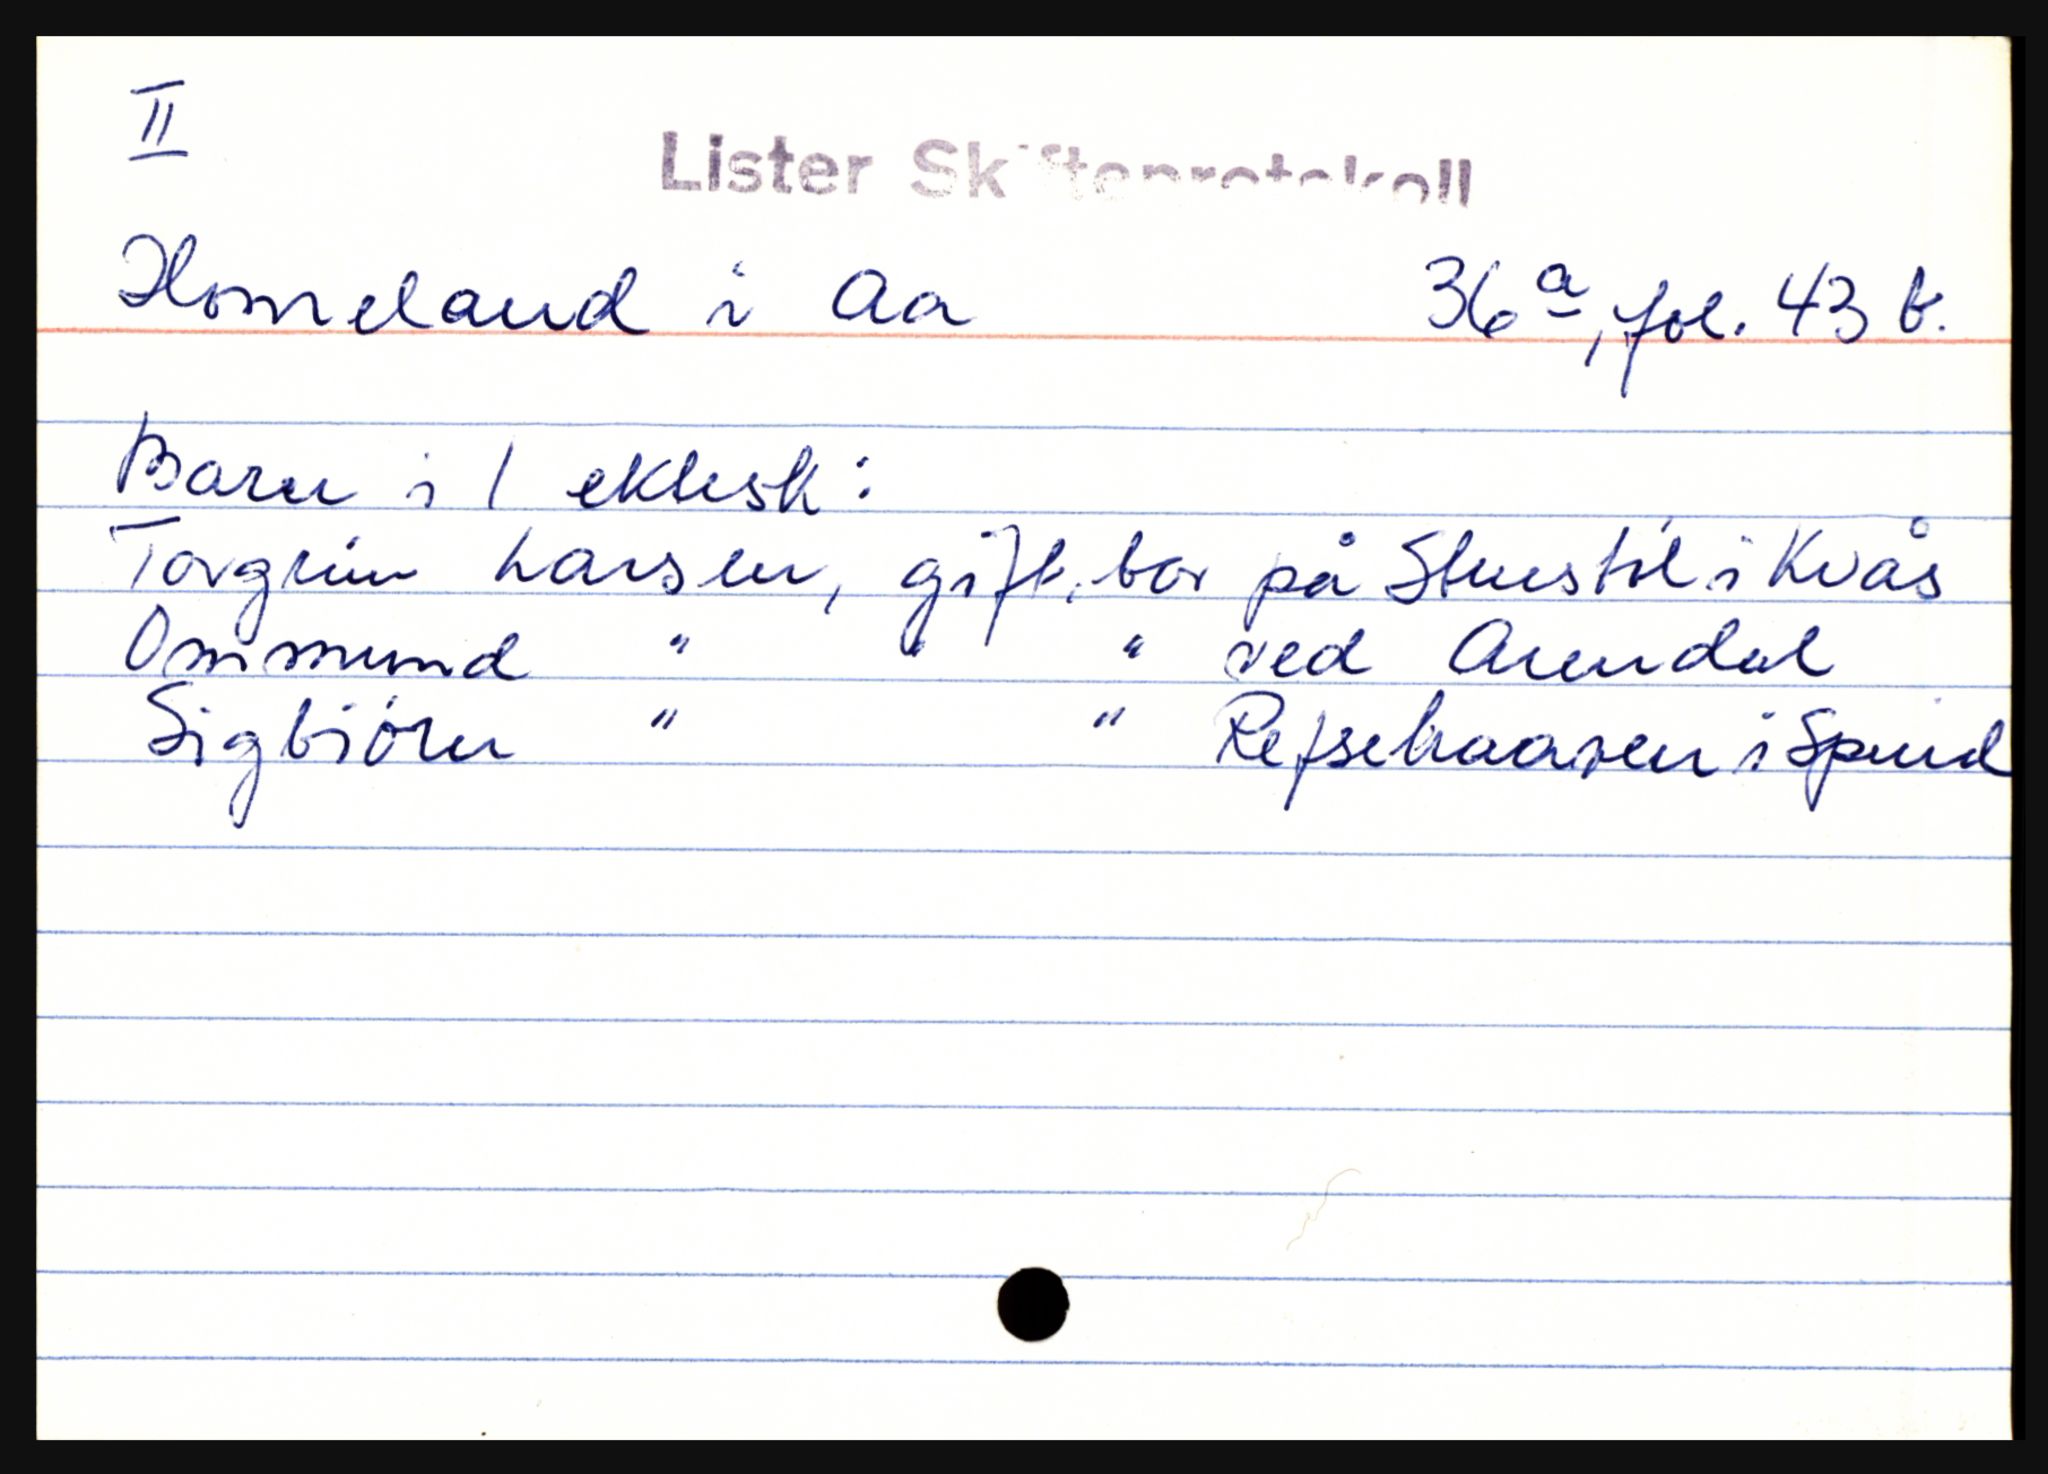 II
Lister Skifteprotokoll
Homeland i Aa 36 a, fol. 43 b.
Barn i 1 ektesk:
Torgrim Larsen, gift, bor på i Kvås
Ommund " " " ved Arendal
Sigbjörn " " Refsehaaven i Spind